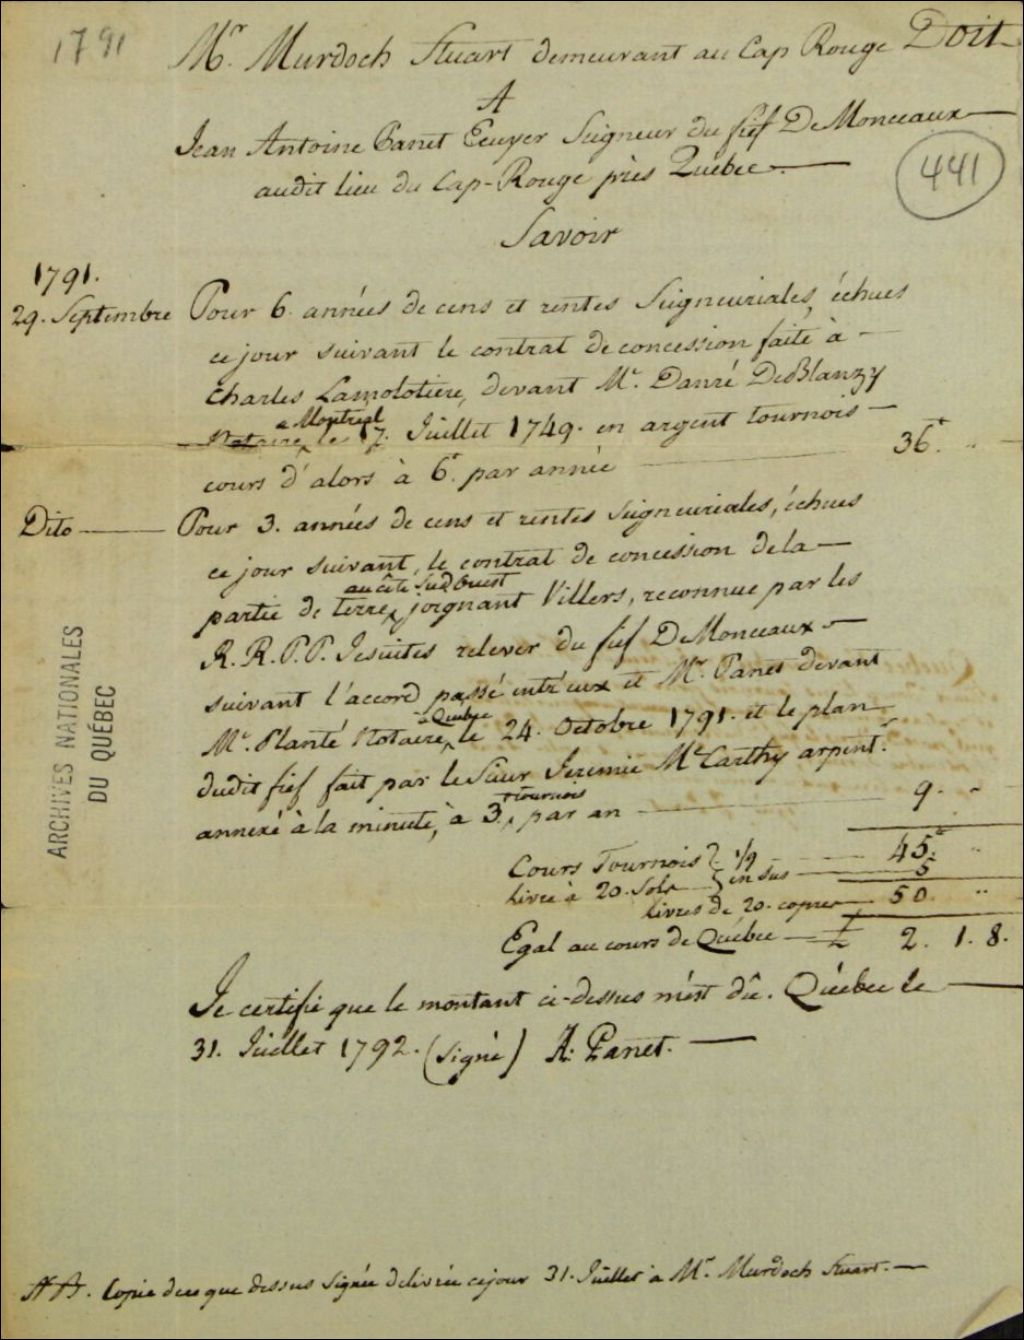 1791
Mr. Murdoch Stuart demeurant au Cap Rouge Doit
A
Jean Antoine Panet Ecuyer Seigneur du fief DeMonceaux
audit lieu du Cap-Rouge près Québec.
441
Savoir
1791.
29. Septembre Pour 6 années de cens et rentes Seigneuriales, échues
ce jour suivant le contrat de concession faite à
Charles Lamolotiere, devant Mr. Danré DeBlanzy
a Montreal
Notaire, le 17. Juillet 1749. en argent tournois
cours d'alors à 6 par année 36
Dito Pour 3. années de cens et rentes Seigneuriales, échues
ce jour suivant, le contrat de concession de la
au côté Sud Ouest
partie de terre, joignant Villers, reconnue par les
R. R. P. P. Jesuites relever du fief DeMonceaux
suivant l'accord passé entr'eux et Mr. Panet devant
à Quebec
Mr. Planté Notaire, le 24. Octobre 1791. et le plan
dudit fief fait par le Sieur Jeremie McCarthy arpent.
tournois
annexé à la minute, à 3 par an 9.
Cours Tournois 1/9 45.
livre à 20. Sols en sus 5
livres de 20. copres 50.
Egal au cours de Québec £ 2. 1. 8.
Je certifie que le montant ci-dessus m'est dû. Québec le
31. Juillet 1792. (signé) A. Panet.
Copie des que dessus signée delivrée ce jour 31. Juillet a Mr. Murdoch Stuart.
ARCHIVES NATIONALES
DU QUÉBEC